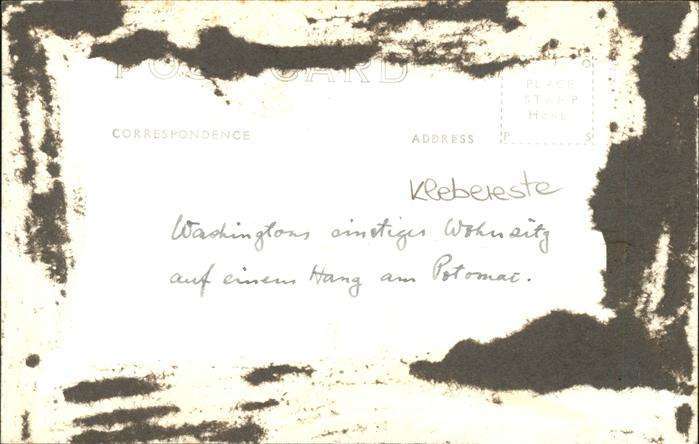 POST CARD
PLACE
STAMP
HERE
CORRESPONDENCE
ADDRESS
P
S
O
Klebereste
Washingtons einstiger Wohnsitz
auf einem Hang am Potomac.